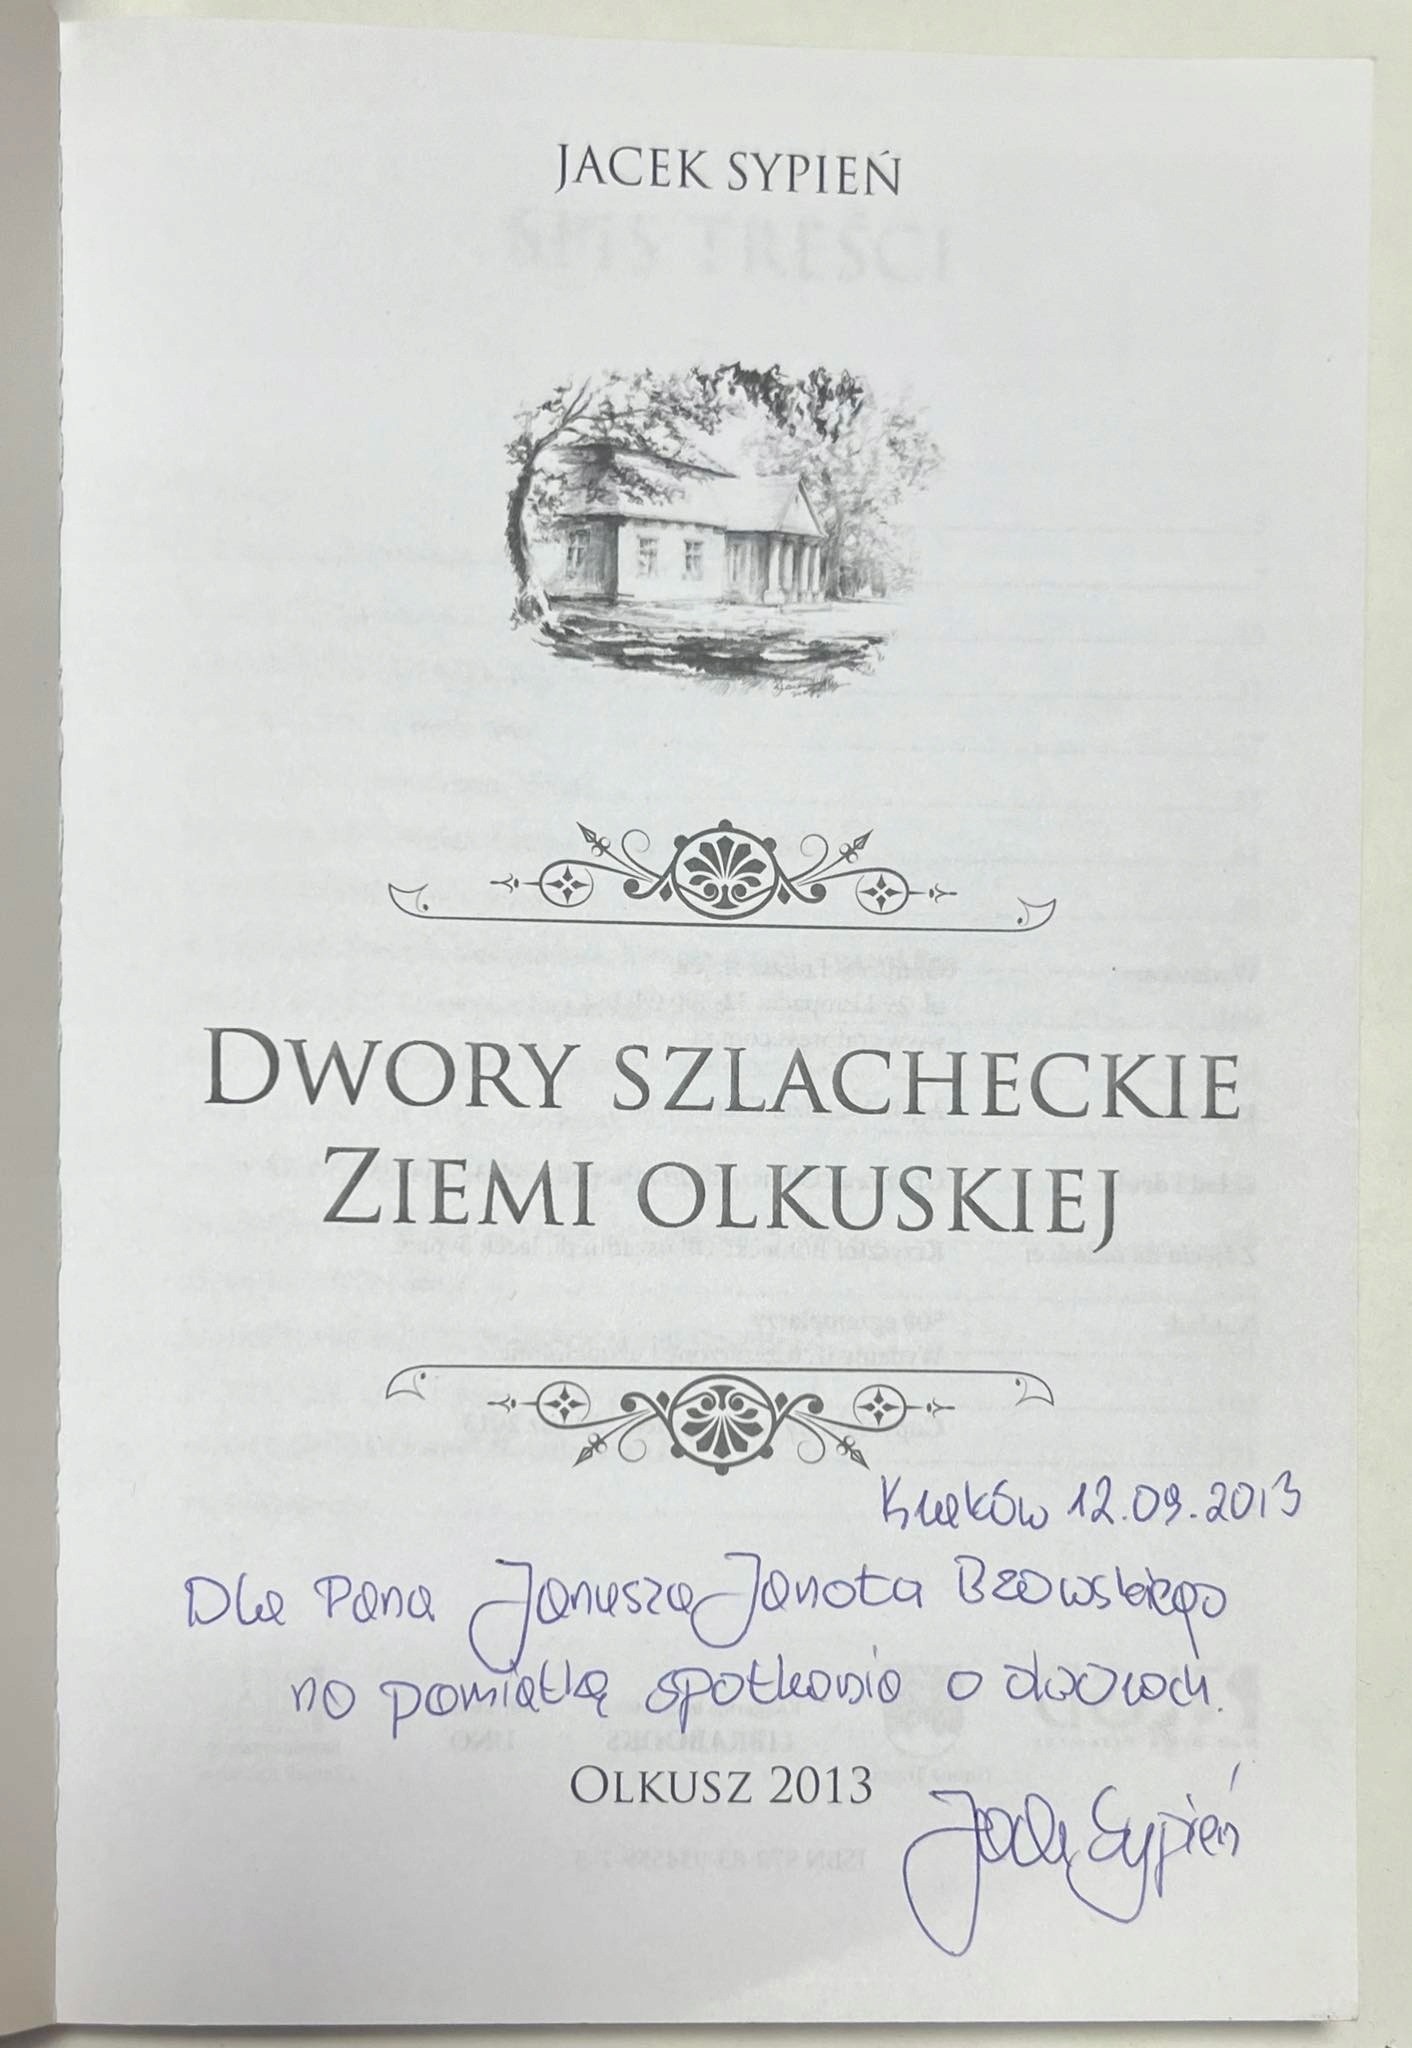 JACEK SYPIEŃ
DWORY SZLACHECKIE
ZIEMI OLKUSKIEJ
Kraków 12.09.2013
Dla Pana Janusza Janota Bzowskiego
na pamiątkę spotkania o dworach.
OLKUSZ 2013
Jacek Sypień